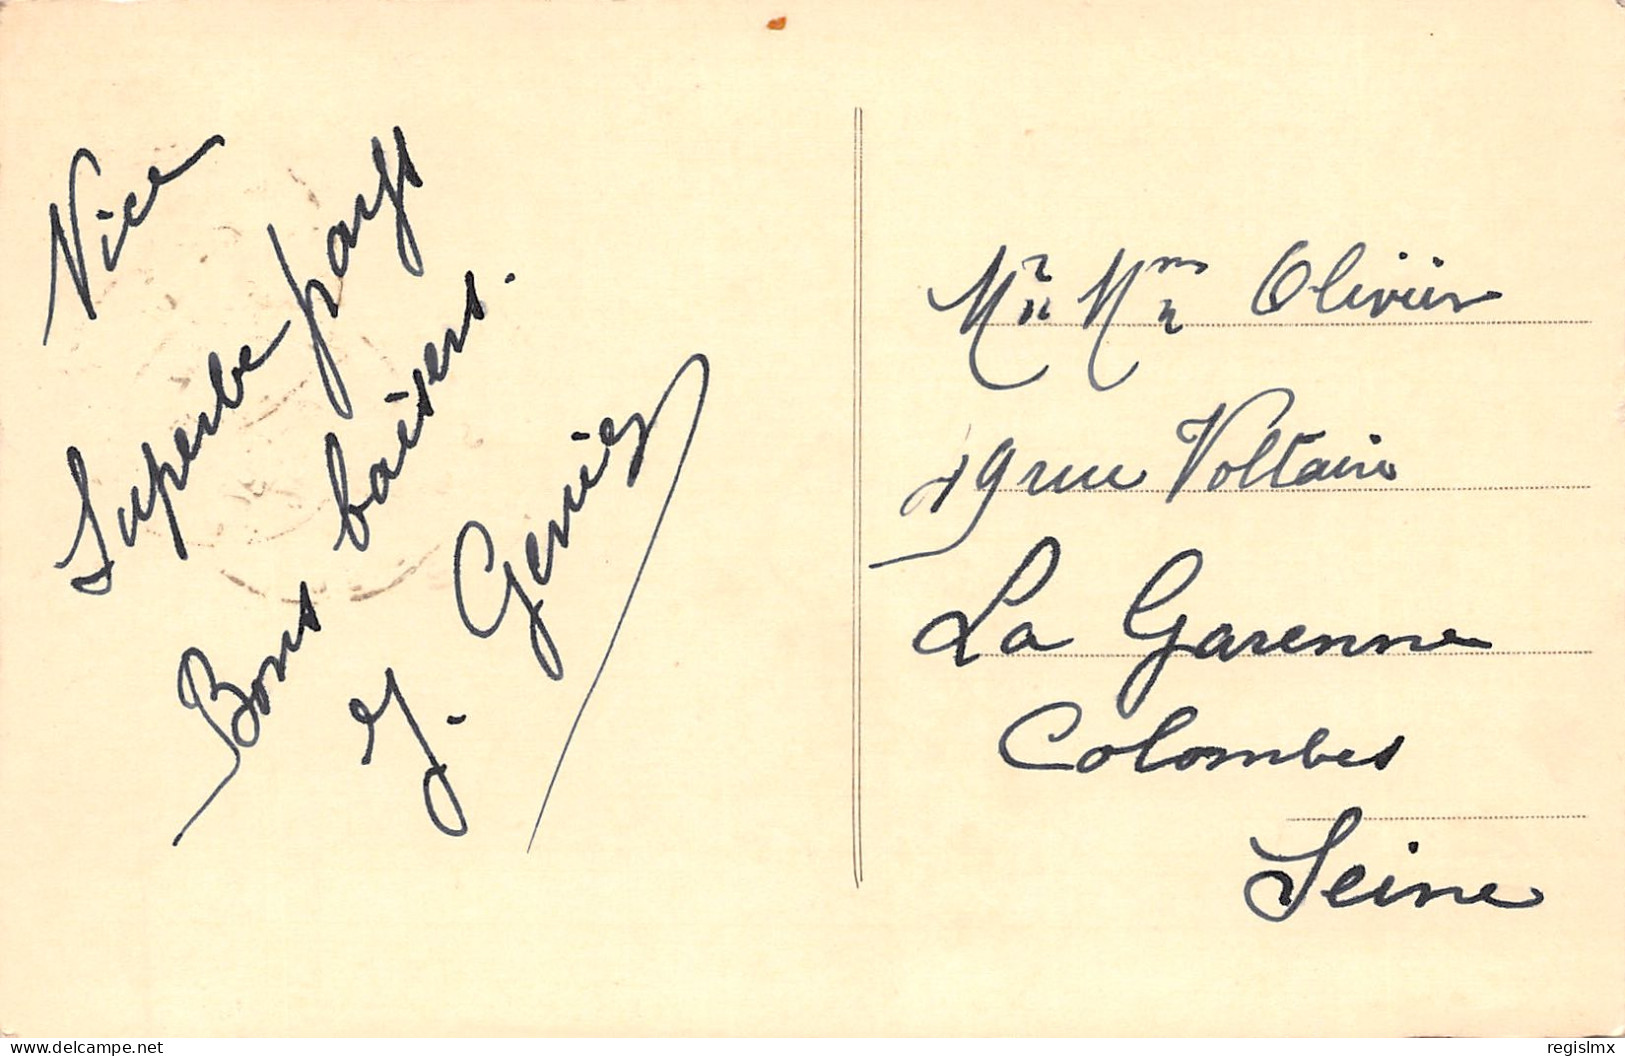 Nice
Superbe pays
Bons baisers.
Y. Geniez
Mr Mme Olivier
19 rue Voltaire
La Garenne
Colombes
Seine
Delcampe.net
regislmx